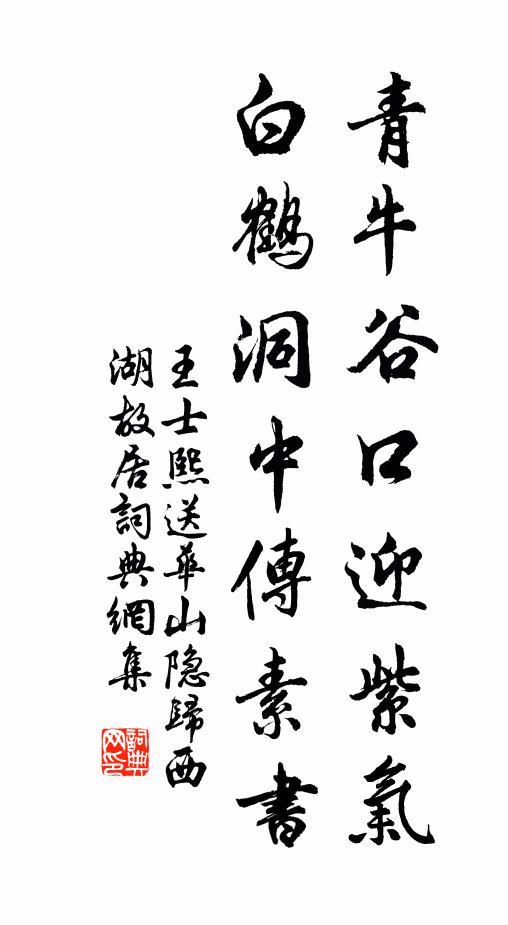 青牛谷口迎紫氣
白鶴洞中傳素書
王士熙送華山隐歸西
湖故居詞典網集
詞典
网印